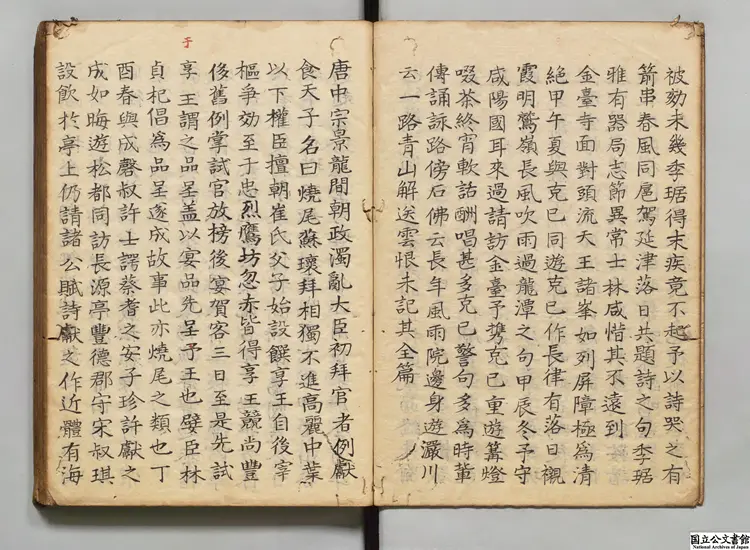 被劾未幾季琚得末疾竟不起予以詩哭之有
箭串春風同扈駕延津落日共題詩之句季琚
雅有器局志節異常士林咸惜其不遠到
金臺寺面對頭流天王諸峯如列屏障極為清
絶甲午夏與克已同遊克已作長律有落日襯
霞明鷲嶺長風吹雨過龍潭之句甲辰冬予守
咸陽國耳來過請訪金臺予携克已重遊篝燈
啜茶終宵軟話酬唱甚多克已警句多為時軰
傳誦詠路傍石佛云長年風雨院邊身遊灑川
云一路青山解送雲恨未記其全篇
唐中宗景龍間朝政濁亂大臣初拜官者例獻
食天子名曰燒尾蘇瓌拜相獨不進高麗中葉
以下權臣擅朝崔氏父子始設饌享王自後宰
樞争効至于忠烈鷹坊忽赤皆得享王競尚豐
侈舊例掌試官放榜後宴賀客三日至是先試
享王謂之品呈盖以宴品先呈予王也嬖臣林
于
貞杞倡為品呈遂成故事此亦燒尾之類也丁
酉春與成罄叔許士諤蔡耆之安子珍許獻之
成如晦遊松都同訪長源亭豐德郡守宋叔琪
設飲於亭上仍請諸公賦詩獻之作近體有海
国立公文書館
National Archives of Japan